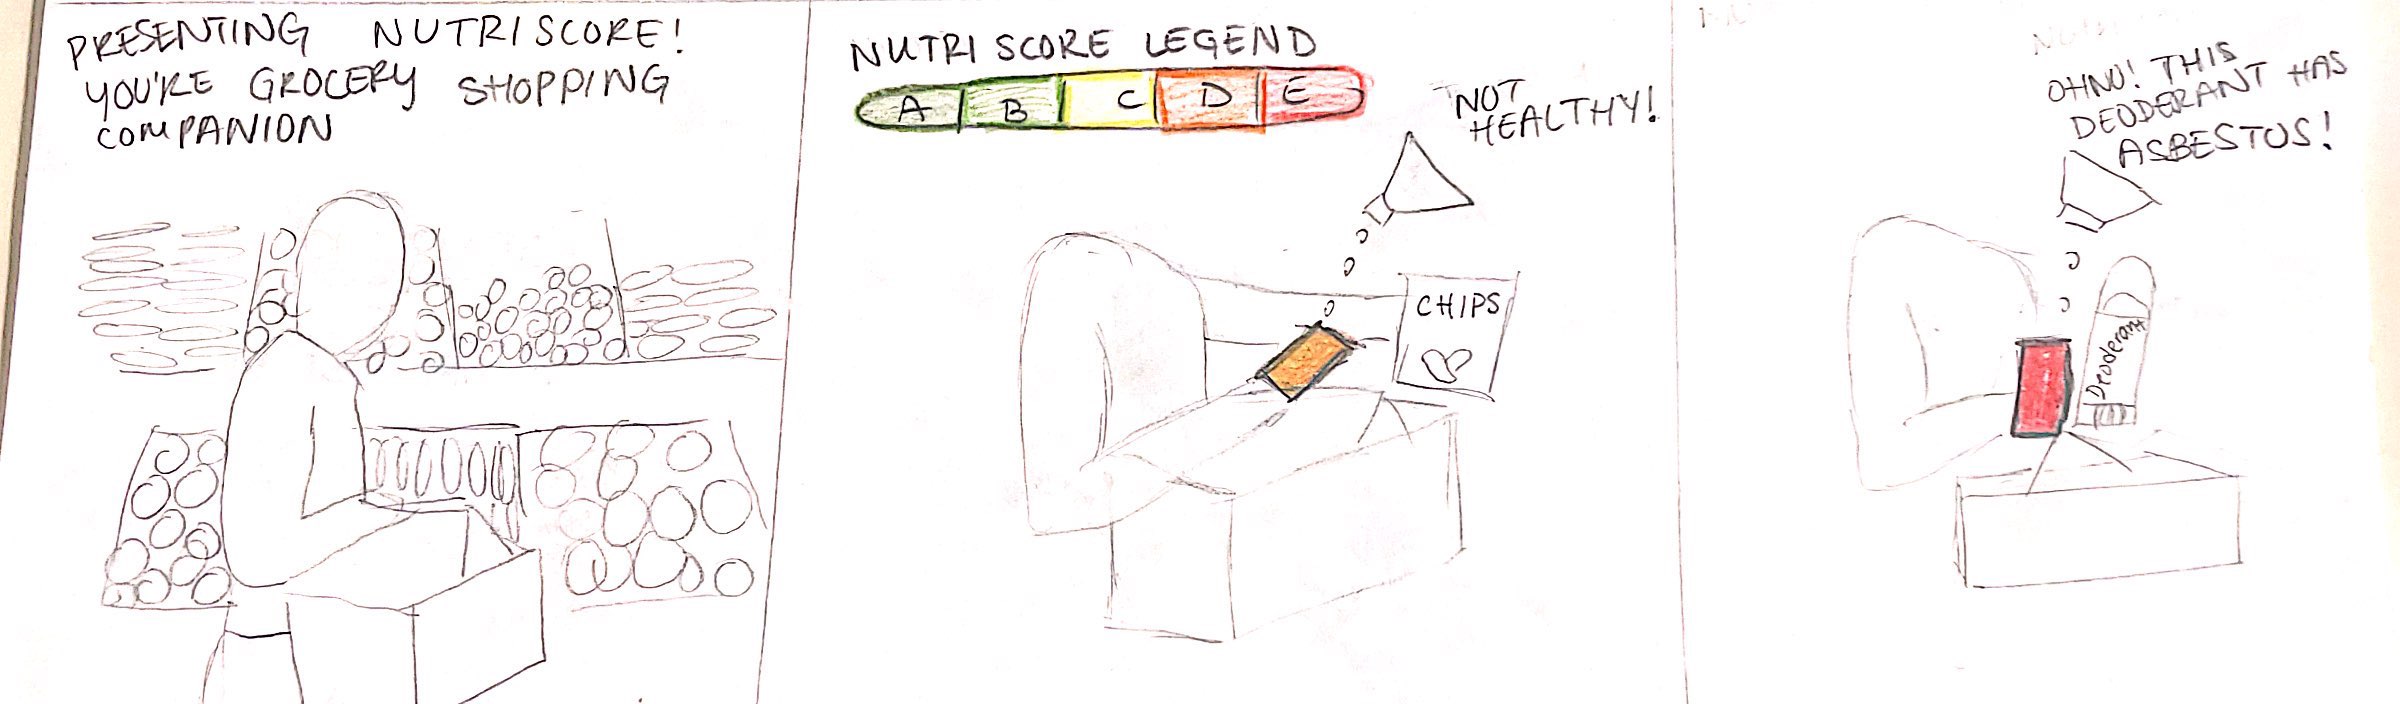 PRESENTING NUTRISCORE!
YOU'RE GROCERY SHOPPING
COMPANION
NUTRI SCORE LEGEND
A B C D E
NOT
HEALTHY!
CHIPS
OHNO! THIS
DEODERANT HAS
ASBESTOS!
Deoderant